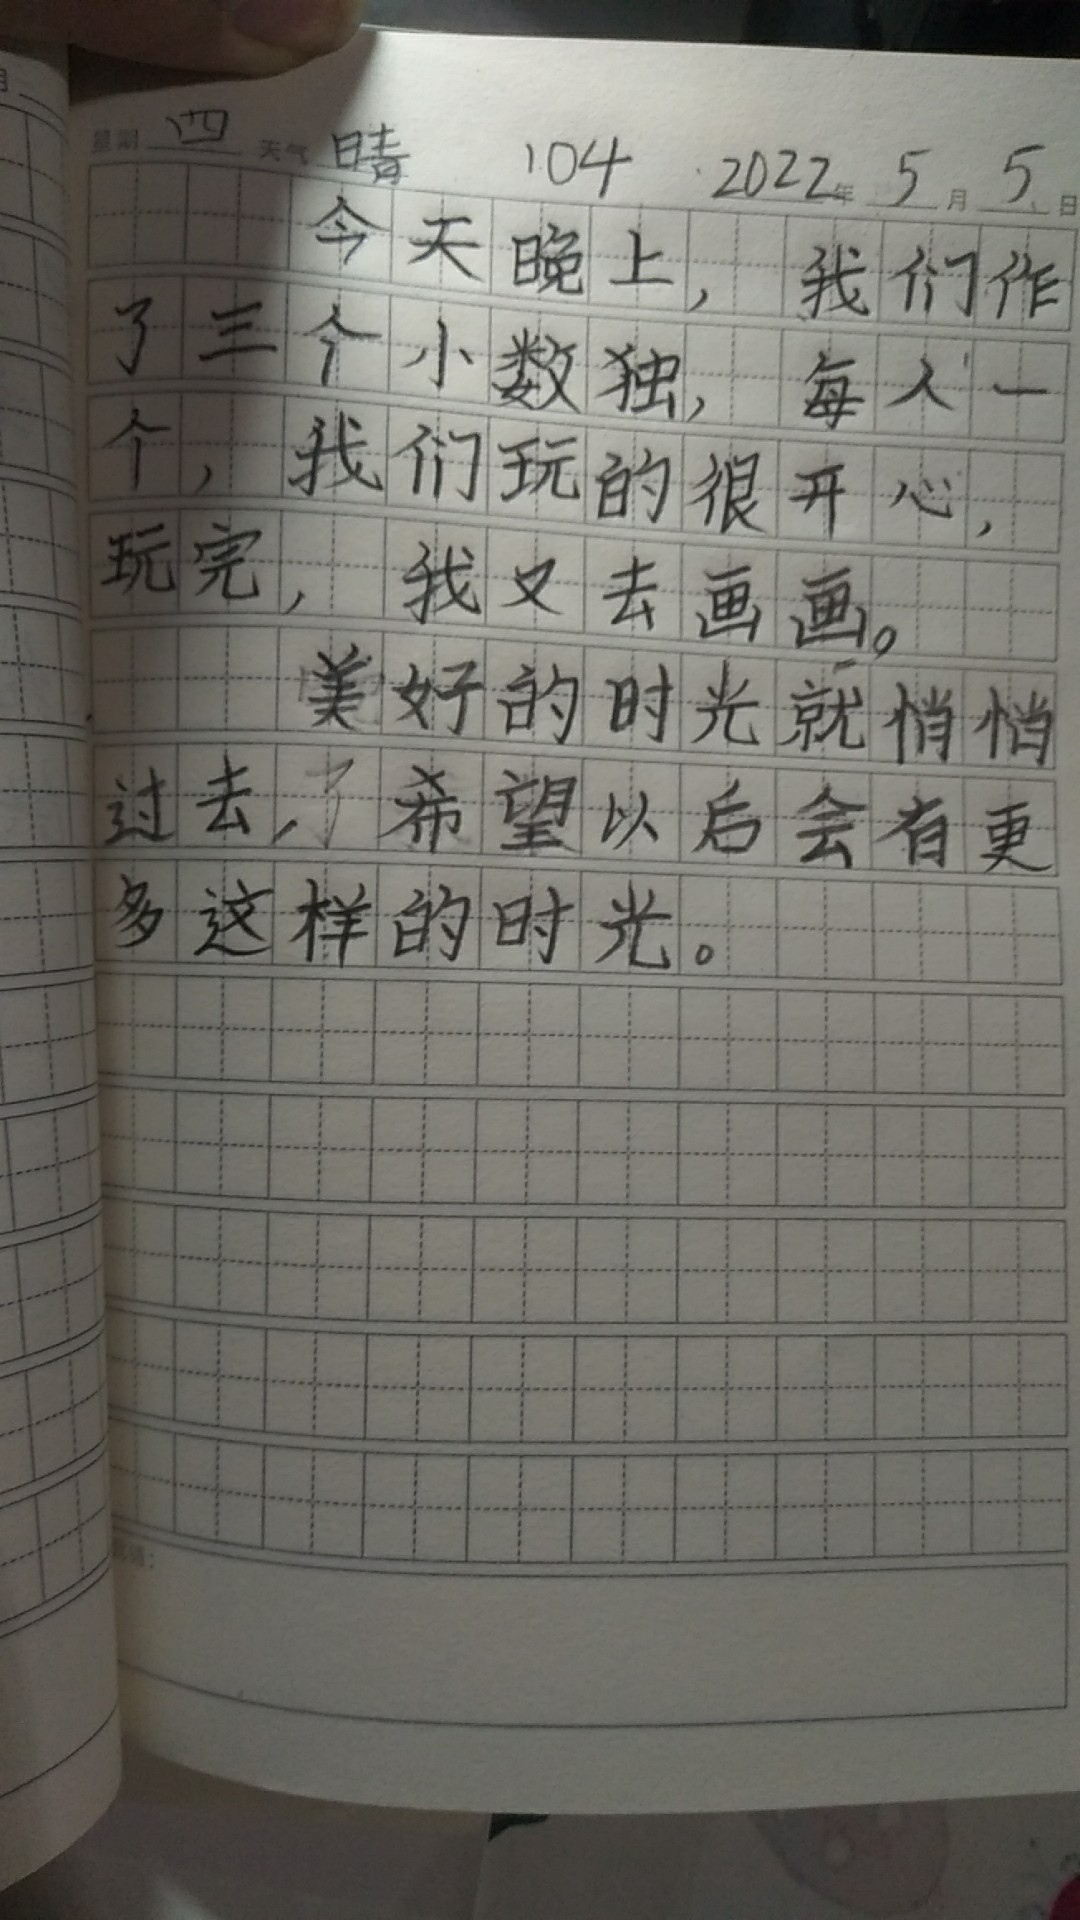 星期 四 天气 晴 104 2022年 5月 5日
今天晚上，我们作
了三个小数独，每人一
个，我们玩的很开心，
玩完，我又去画画。
美好的时光就悄悄
过去，了希望以后会有更
多这样的时光。